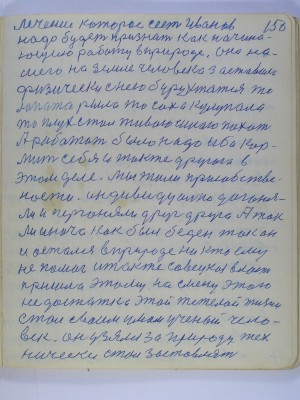 лечение которое сеет Иванов 150
надо будет признать как начина-
ющую работу в природе. оно на-
шего на земле человека заставило
физически с нею бурухтатся то
лопата рыла то соха
то плуг стал
А работат было надо и ба кор-
мит себя и также другого в
этом деле. мы жили при собстве-
ности. индивидуално догоня-
ли и перегоняли друг друга А так
как был беден так он
и остался в природе ни кто ему
не помог и также совецкая власт
пришла этому на смену этого
недостатка этой тяжелой жизни
стал своим умом ученый чело-
век. он узялся за природу тех
нически стал заставлят